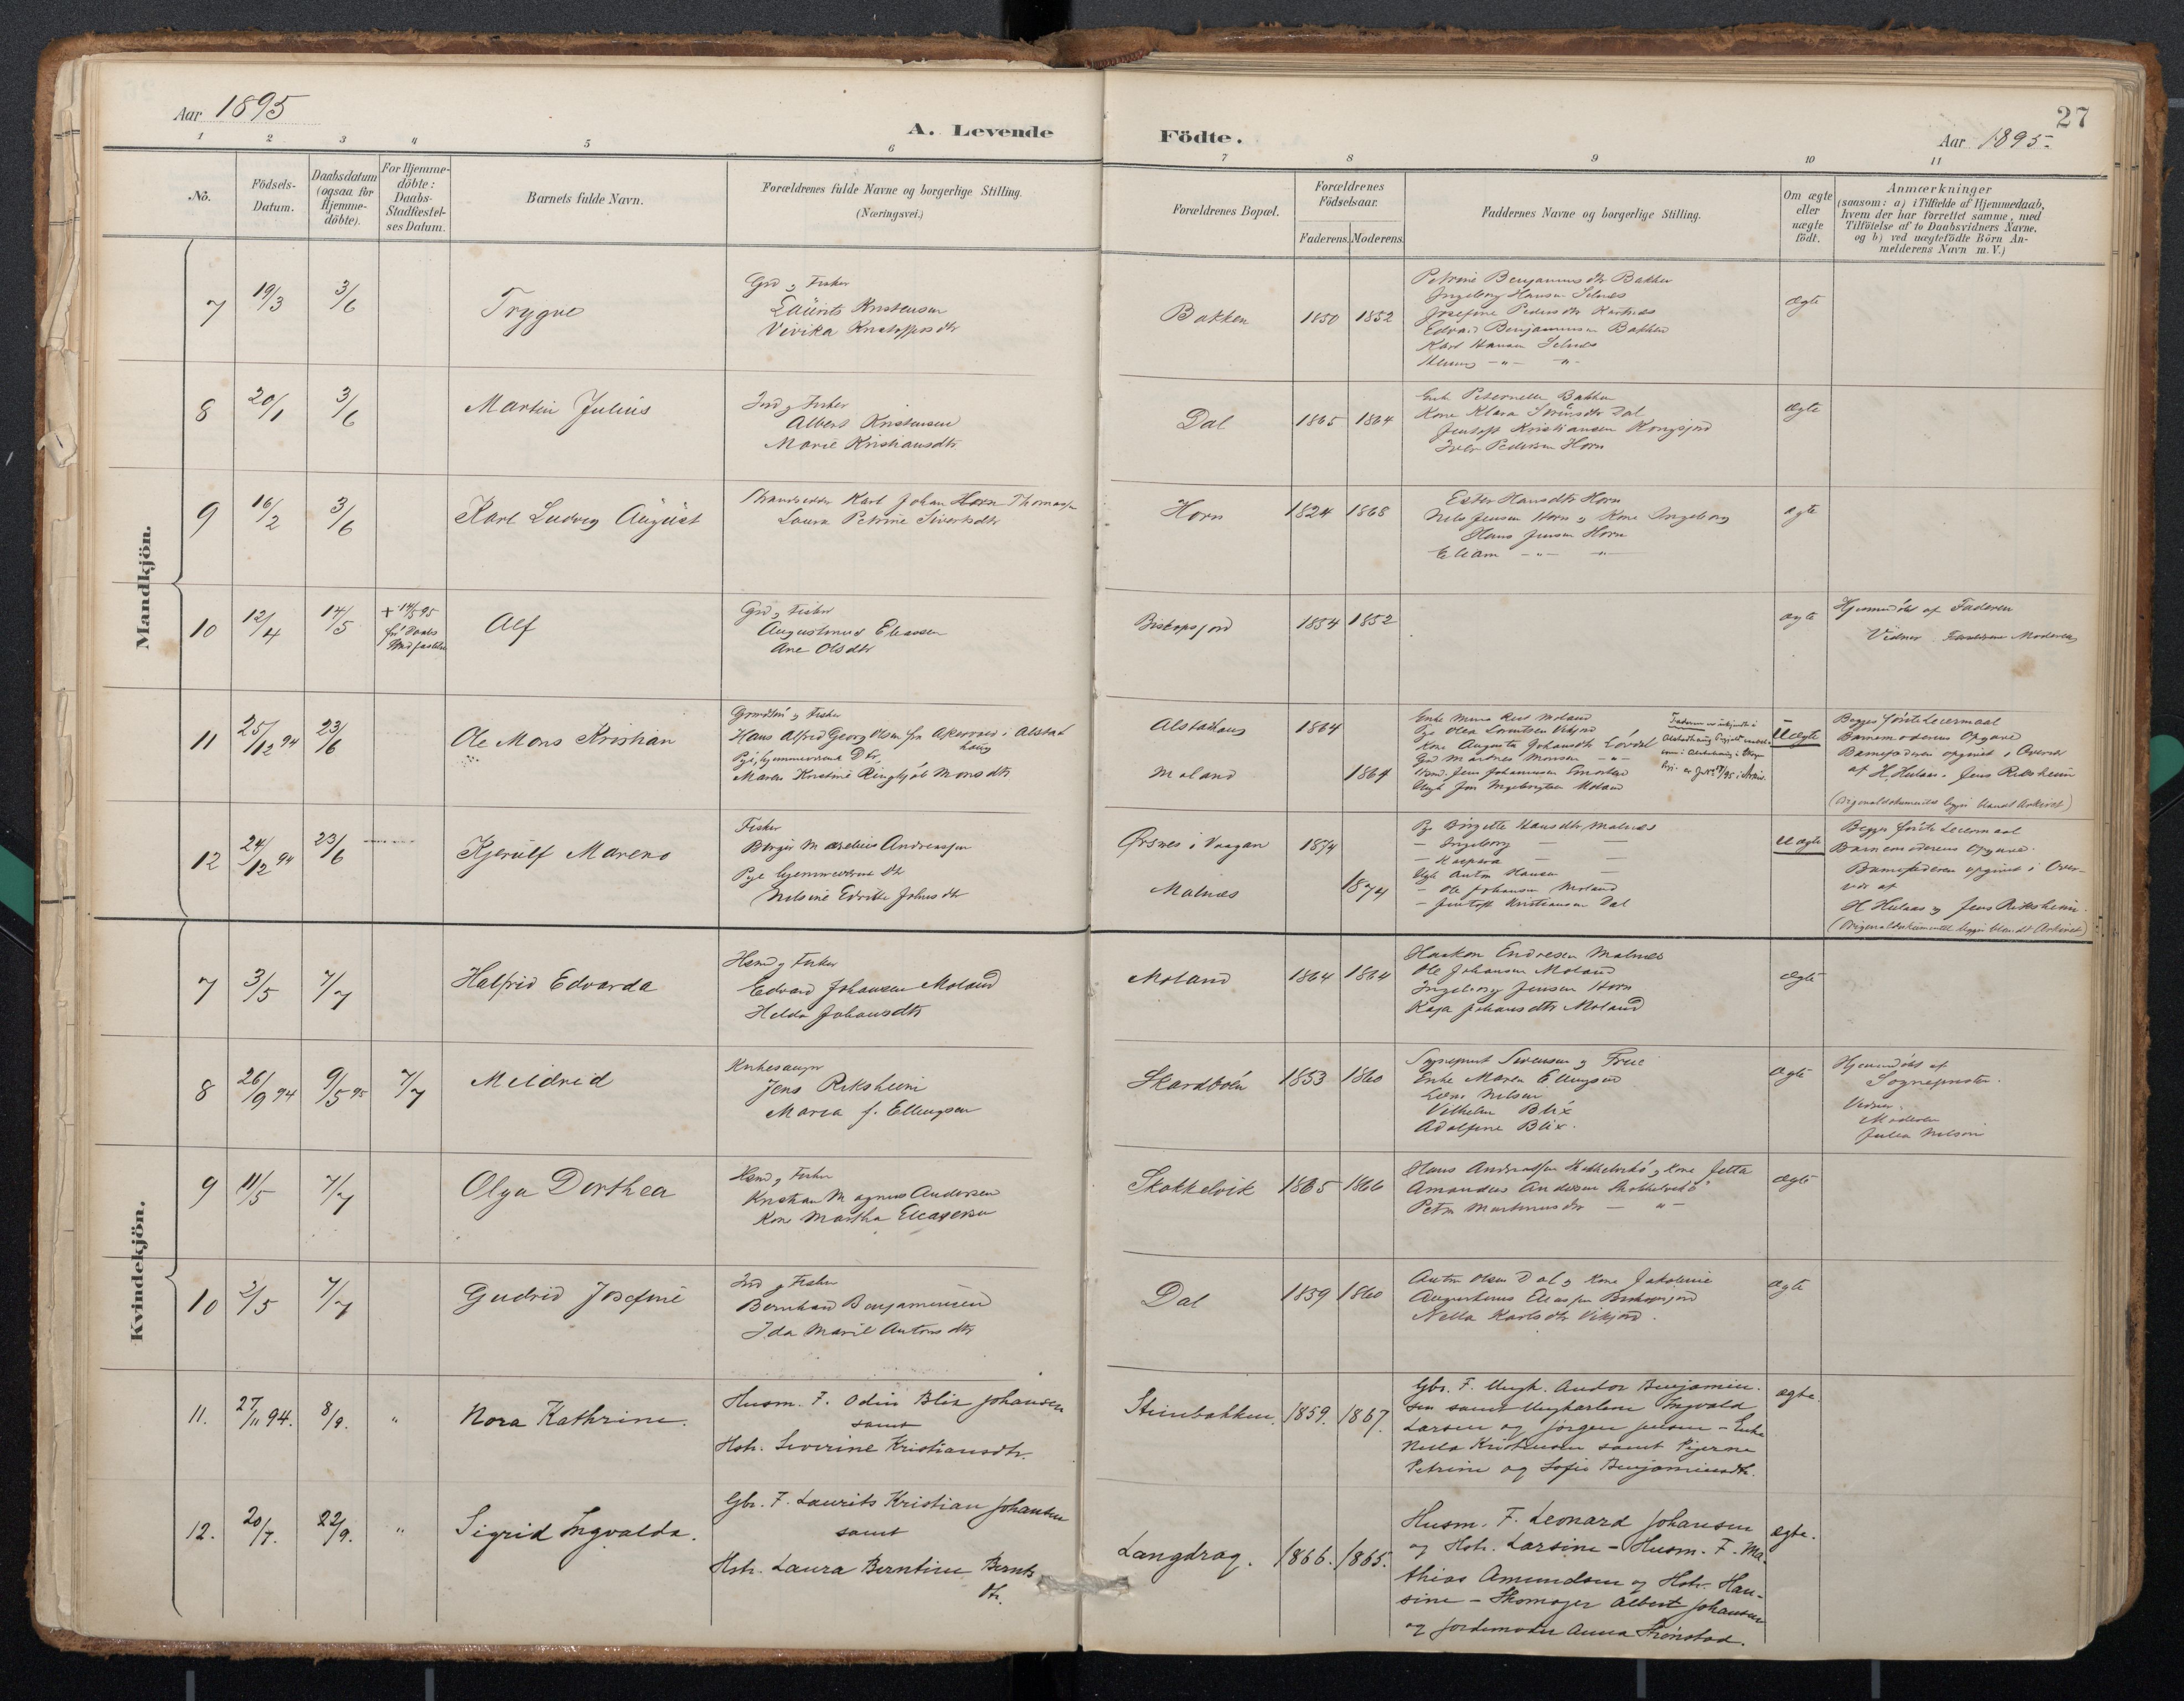 27
Aar 1895
A. Levende
Födte.
Aar 1895.
1 2 3 4 5 6 7 8 9 10 11
No.
Födsels-
Datum.
Daabsdatum
(ogsaa for
Hjemme-
döbte).
For Hjemme-
döbte:
Daabs-
Stadfæstel-
ses Datum.
Barnets fulde Navn.
Forældrenes fulde Navne og borgerlige Stilling.
(Næringsvei.)
Forældrenes Bopæl.
Forældrenes
Födselsaar.
Faderens. Moderens.
Faddernes Navne og borgerlige Stilling.
Om ægte
eller
uægte
födt.
Anmærkninger
(saasom: a) i Tilfælde af Hjemmedaab,
hvem der har forrettet samme, med
Tilföielse af to Daabsvidners Navne.
og b) ved uægtefödte Börn An-
melderens Navn m. V.)
Mandkjön.
7 19/3 3/6 Trygve
Laurits Kristensen
Vivika Kristoffersdtr
Bakken 1850 1852
Petrine Benjaminsdtr Bakken
Ingeborg Hansen Selnes
Josefine Pedersdtr
Edvard Benjaminsen Bakken
Karl Hansen Selnes
ægte
8 20/1 3/6 Martin Julius
Albert Kristensen
Marie Kristiansdtr
Dal 1865 1864
Enk Peternelle Bakken
Kone Klara Dal
Jentoft Kristiansen
Iver Pedersen Horn
ægte
9 16/2 3/6 Karl Ludvig August
Strandsidder Karl Johan Horn Thomassen
Laura Petrine Sivertsdtr
Horn 1824 1868
Ester Hansdtr Horn
Nils Jensen Horn og Kone Ingeborg
Hans Jensen Horn
Eliam - " - - " -
ægte
10 12/4 14/5 + 14/5 95
før Daabs
Alf
Grd og Fisker
Augustinus Eleasen
Ane Olsdtr
Bispsfjord 1854 1852
ægte
Hjemmedöbt af Faderen
Moderen
11 25/12 94 23/6 Ole Mons Kristian
og Fisker
Hans Alfred Georg Olsen fra i Alstad
haug
Pige, hjemmeværende Dtr,
Maren Kristine Ringkjøb Monsdtr
Alstadhaug 1864
Moland 1864
Uægte
Begges förste Leiermaal
Barnemoderens Opgave
Barnefaderen opgivet i Overvær
af H. Hulaas. Jens Riksheim
(Originaldokumentet ligger blandt Arkivet)
12 24/12 94 23/6 Kjerulf Mareno
Fisker
Birger Marelius Andreassen
Pige hjemmeværende Dtr
Nilsine Edvikke Johnsdtr
Ørsnes i Vaagan 1874
Malnes 1874
Pge Birgitte Hansdtr Malnes
- Ingeborg - -
- Kaspara - -
Ungk Anton Hansen -
- Ole Johansen Moland
- Jentoft Kristiansen Dal
Uægte
Begges förste Leiermaal
Barnemoderens Opgave.
Barnefaderen opgivet i Over-
vær af
H Hulaas og Jens Riksheim.
(Originaldokumentet ligger blandt Arkivet)
Kvindekjön.
7 3/5 7/7 Halfrid Edvarda
Hsmd og Fisker
Edvard Johansen Moland
Helda Johansdtr
Moland 1864 1864
Haakon Endresen Malnes
Ole Johansen Moland
Ingeborg Jensen Horn
Kaja Johansdtr Moland
ægte
8 26/9 94 9/5 95 7/7 Mildrid
Kirkesanger
Jens Riksheim
Maria f. Ellingsen
Skardboen 1853 1860
Sogneprest Svensen og Frue
Enke Maren Ellingsen
Nilsen
Vilhelm Blix
Adolfine Blix.
ægte
Hjemmedöbt af
Sognepresten.
Vidner.
Moderen
Julia Nilsen
9 11/5 7/7 Olga Dorthea
Hsmd og Fisker
Kristian Magnus Andersen
Kone Martha Eleasersen
Skokkelvik 1865 1866
Amandus Andersen
Petra Martinusdtr - " -
ægte
10 2/5 7/7 Gudrid Josefine
Ind og Fisker
Bernhard Benjaminsen
Ida Marie Antonsdtr
Dal 1859 1860
Anton Olsen Dal og Kone Jakobine
Augustinus Eleassen
Nella Karlsdtr Vikjord.
ægte
11. 27/11 94. 8/9. " Nora Kathrine.
Husm. F. Odin Blix Johansen
samt
Hstr. Severine Kristiansdtr.
Steinbakken. 1859. 1867.
Gbr. F. Ungk. Andor Benjamin-
sen samt Ungkarlene Ingvald
Larsen og Jörgen Jensen - Enke
Nella Kristensen samt Pigerne
Petrine og Sofie Benjaminsdtr.
ægte.
12. 20/7. 22/9. " Sigrid Ingvalda.
Gbr. F. Laurits Kristian Johansen
samt
Hstr. Laura Berntine Bernts
dtr.
Langdrag. 1866. 1865.
Husm. F. Leonard Johansen
og Hstr. Larsine - Husm. F. Ma-
thias Amundsen og Hstr. Han-
sine - Skomager Albert Johansen
og Jordemoder Anna Skönstad.
ægte.